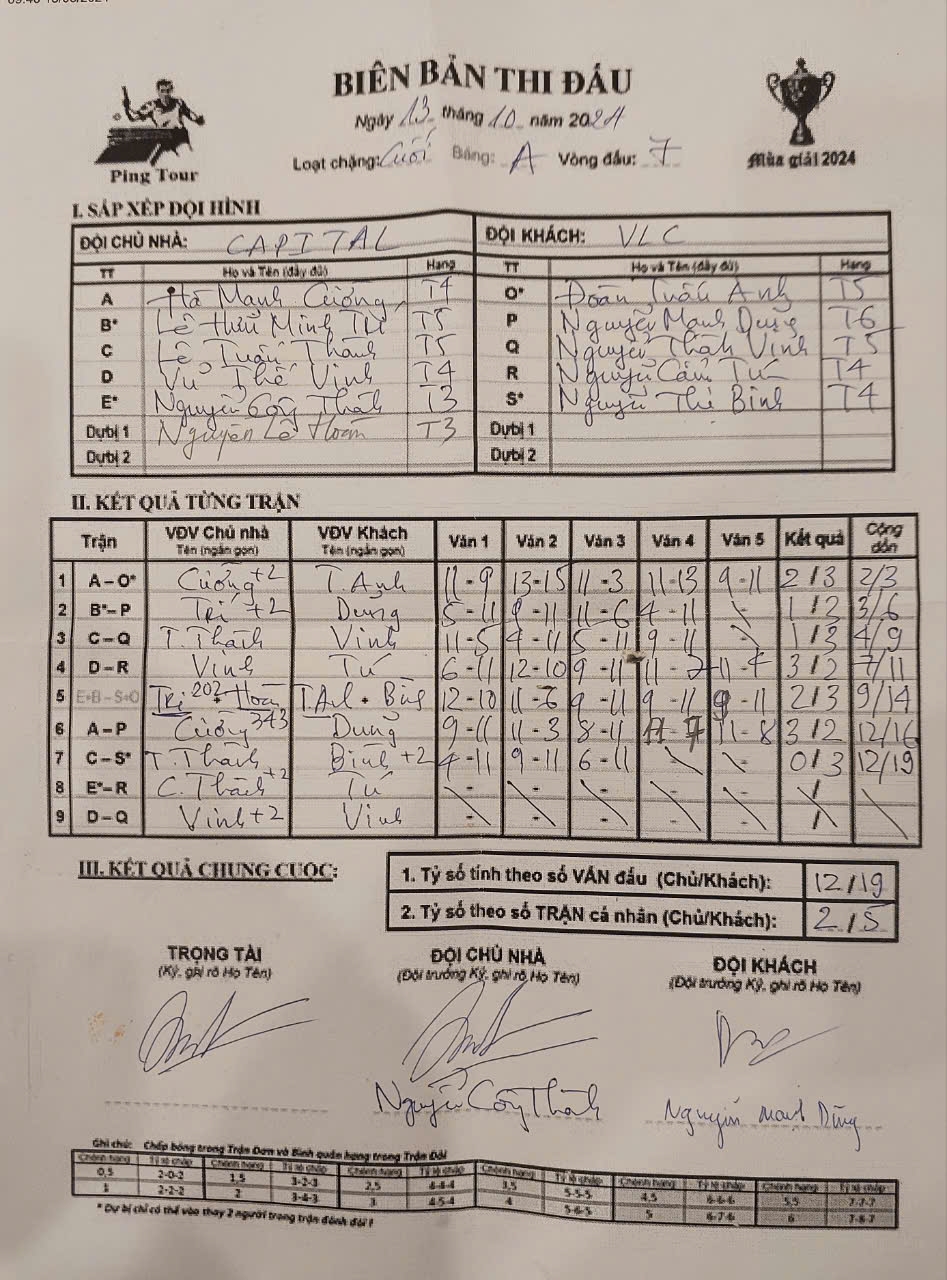 BIÊN BẢN THI ĐẤU
Ngày 13 tháng 10 năm 2024
Loạt chặng: Cuối Bảng: A Vòng đấu: 7
Ping Tour
Mùa giải 2024
I. SẮP XẾP ĐỘI HÌNH
ĐỘI CHỦ NHÀ: CAPITAL ĐỘI KHÁCH: VLC
TT Họ và Tên (đầy đủ) Hạng TT Họ và Tên (đầy đủ) Hạng
A Hà Mạnh Cường T4 O* Đoàn Tuấn Anh T5
B* Lê Hữu Minh Trí T5 P Nguyễn Mạnh Dũng T6
C Lê Tuấn Thành T5 Q Nguyễn Thành Vinh T5
D Vũ Thế Vinh T4 R Nguyễn Cẩm Tú T4
E* Nguyễn Công Thành T3 S* Nguyễn Thị Bình T4
Dự bị 1 Nguyễn Lê Hoàn T3 Dự bị 1
Dự bị 2 Dự bị 2
II. KẾT QUẢ TỪNG TRẬN
Trận VĐV Chủ nhà VĐV Khách Ván 1 Ván 2 Ván 3 Ván 4 Ván 5 Kết quả Cộng dồn
Tên (ngắn gọn) Tên (ngắn gọn)
1 A – O* Cường +2 T.Anh 11-9 13-15 11-3 11-13 9-11 2/3 2/3
2 B* – P Trí +2 Dũng 5-11 9-11 11-6 4-11 - 1/2 3/6
3 C – Q T.Thành Vinh 11-5 4-11 5-11 9-11 1/3 4/9
4 D – R Vinh Tú 6-11 12-10 9-11 11-7 11-4 3/2 7/11
5 E+B – S+O Trí 202 + Hoàn T.Anh + Bình 12-10 11-6 9-11 9-11 9-11 2/3 9/14
6 A – P Cường 343 Dũng 9-11 11-3 8-11 11-7 11-8 3/2 12/16
7 C – S* T.Thành Bình +2 4-11 9-11 6-11 0/3 12/19
8 E* – R C.Thành +2 Tú - - - - - /
9 D – Q Vinh +2 Vinh - - - - - /
III. KẾT QUẢ CHUNG CUỘC:
1. Tỷ số tính theo số VÁN đấu (Chủ/Khách): 12/19
2. Tỷ số theo số TRẬN cá nhân (Chủ/Khách): 2/5
TRỌNG TÀI ĐỘI CHỦ NHÀ ĐỘI KHÁCH
(Ký, ghi rõ Họ Tên) (Đội trưởng Ký, ghi rõ Họ Tên) (Đội trưởng Ký, ghi rõ Họ Tên)
Nguyễn Công Thành Nguyễn Mạnh Dũng
Ghi chú: Chấp bóng trong Trận Đơn và Bình quân hạng trong Trận Đôi
Chênh hạng Tỷ lệ chấp Chênh hạng Tỷ lệ chấp Chênh hạng Tỷ lệ chấp Chênh hạng Tỷ lệ chấp Chênh hạng Tỷ lệ chấp Chênh hạng Tỷ lệ chấp
0,5 2-0-2 1,5 3-2-3 2,5 4-4-4 3,5 5-5-5 4,5 6-6-6 5,5 7-7-7
1 2-2-2 2 3-4-3 3 4-5-4 4 5-6-5 5 6-7-6 6 7-8-7
* Dự bị chỉ có thể vào thay 2 người trong trận đánh đôi !